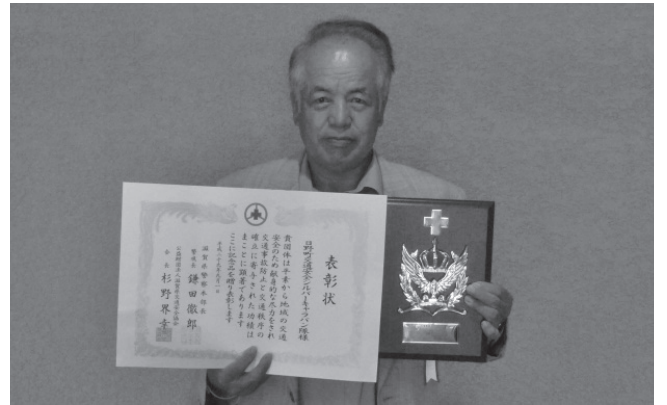 表彰状
日野町交通安全シルバーキャラバン隊様
貴団体は平素から地域の交通
安全のため献身的な尽力をされ
交通事故防止と交通秩序の
確立に寄与された功績は
まことに顕著であります
ここに記念品を贈り表彰します
滋賀県警察本部長
警視長 鎌田徹郎
会長 杉野界幸